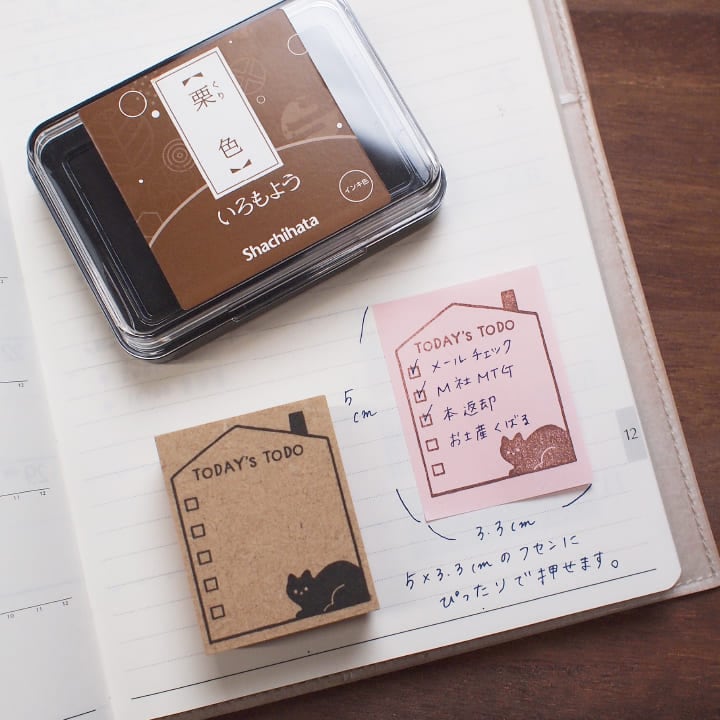 【栗色】
くり
いろもよう
インキ色
Shachihata
TODAY'S TODO
メールチェック
M社MTG
本返却
お土産くばる
5
cm
3.3cm
5×3.3cmのフセンに
ぴったりで押せます。
TODAY'S TODO
12
12
12
10
11
12